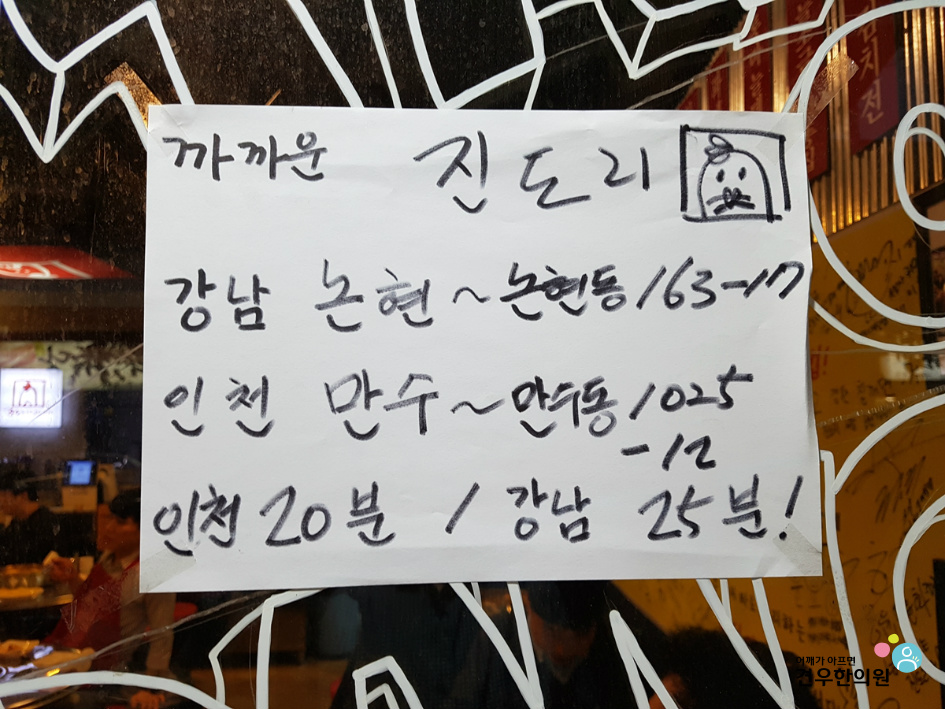 까까운 진도리
강남 논현 ~ 논현동 163-17
인천 만수 ~ 만수동 1025
-12
인천 20분 / 강남 25분!
김치전
어깨가 아프면
건우한의원